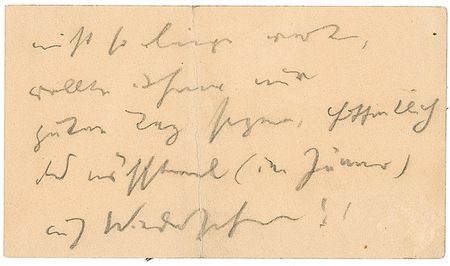 nicht so lange warten,
wollte Ihnen nur
guten Tag sagen, hoffentlich
das nächstemal (im Jänner)
auf Wiedersehen!!